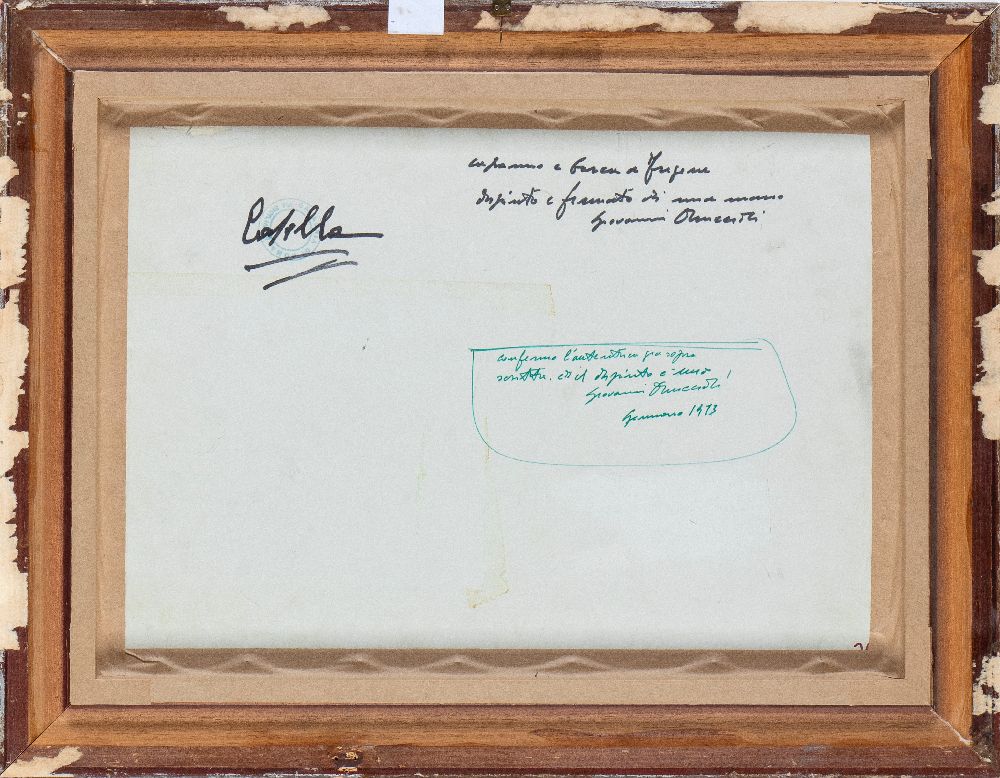 capanno e barca a Frigene
dipinto e firmato di mia mano
Giovanni Omiccioli
Capella
confermo l'autentica già sopra
scritta. ed il dipinto è mio!
Giovanni Omiccioli
Gennaio 1973